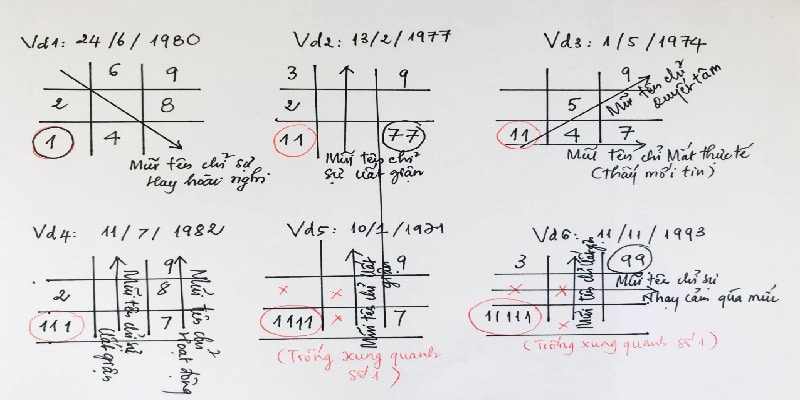 Vd1: 24/6/1980
6 9
2 8
1 4
Mũi tên chỉ sự
Hay hoài nghi
Vd2: 13/2/1977
3 9
2
11 77
Mũi tên chỉ
sự uất giận
Vd3: 1/5/1974
9
5
11 4 7
Mũi tên chỉ
Quyết tâm
Mũi tên chỉ Mắt thực tế
(thấy mới tin)
Vd4: 11/7/1982
9
2 8
111 7
Mũi tên chỉ sự
Uất giận
Mũi tên chỉ
Hoạt động
Vd5: 10/1/1971
9
x x
1111 x 7
Mũi tên chỉ Uất
giận
(Trống xung quanh
số 1)
Vd6: 11/11/1993
3 99
x x
11111 x
Mũi tên chỉ
Mũi tên chỉ sự
Nhạy cảm quá mức
(Trống xung quanh số 1)